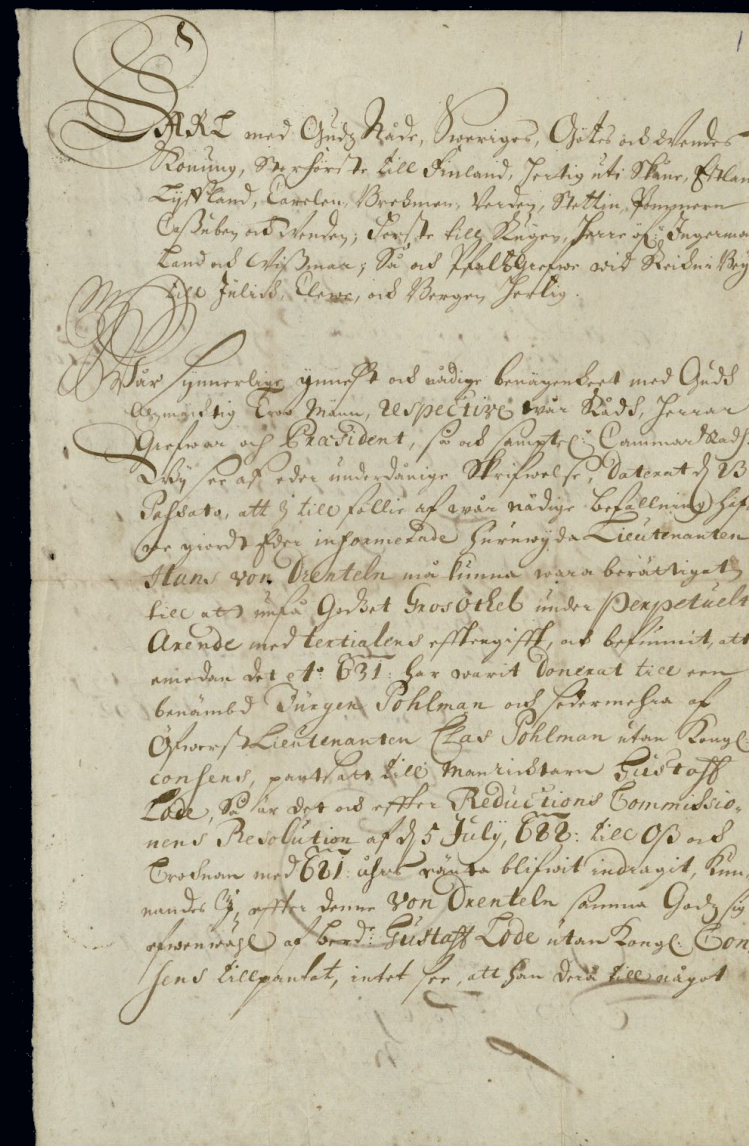 CARL med Gudz Nåde, Sweriges, Götes och Wendes
Konung, Storförste till Finland, Hertig uti Skåne, Estlan
Lyffland, Carelen, Brehmen, Verden, Stettin, Pommern
Cassuben och Wenden; Förste till Rügen, Herre öf: Ingerma
Land och Wißmar; Så och Pfaltz Grefwe wid Rhein i Bey
till Jülich, Clewe, och Bergen Hertig.
Wår synnerlige ynnest och nådige benägenheet med Gudh
Alzmächtig Troo Männ, respective wår Rådh, Herrar
Grefwar och Præsident, så och samptel: Cammar Rådh.
Wy see af eder underdånige Skrifwelse, daterat d 23
Passato, att J till föllie af wår nådige befallning haf
we giordt Eder informerade huruwyda Lieutenanten
Hans von Drenteln må kunna wara berättigat
till att niuta Godzet Grosöthel under Perpetuelt
Arende med tertialens efftergifft, och befunnit, att
emedan det Ao 631: har warit donerat till een
benämbd Jürgen Pohlman och sedermehra af
Öfwerst Lieutenanten Clas Pohlman utan Kongl:
consens, pantsatt till Manrichtarn Gustaff
Lode, Så är det och effter Reductions Commissio-
nens Resolution af d 5 July, 688: till Oß och
Cronan med 681 åhrs ränta blifwit indragit, Kun-
nandes J, effter denne von Drenteln samma Godz sig
efwenwähl af berd: Gustaff Lode utan Kongl: Con
sens tillpantat, intet see, att han der till något